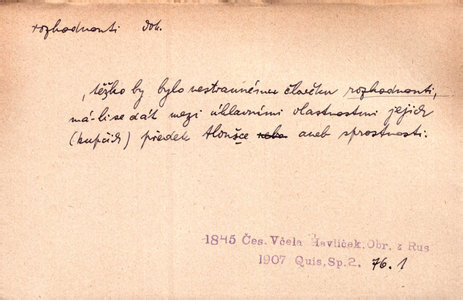 rozhodnouti dok.
, těžko by bylo nestrannému člověku rozhodnouti,
má-li se dát mezi úhlavními vlastnostmi jejich
(kupčích) předek tloušce nebo aneb sprostnosti.
1845 Čes. Včela Havlíček, Obr. z Rus
1907 Quis, Sp. 2. 76.1